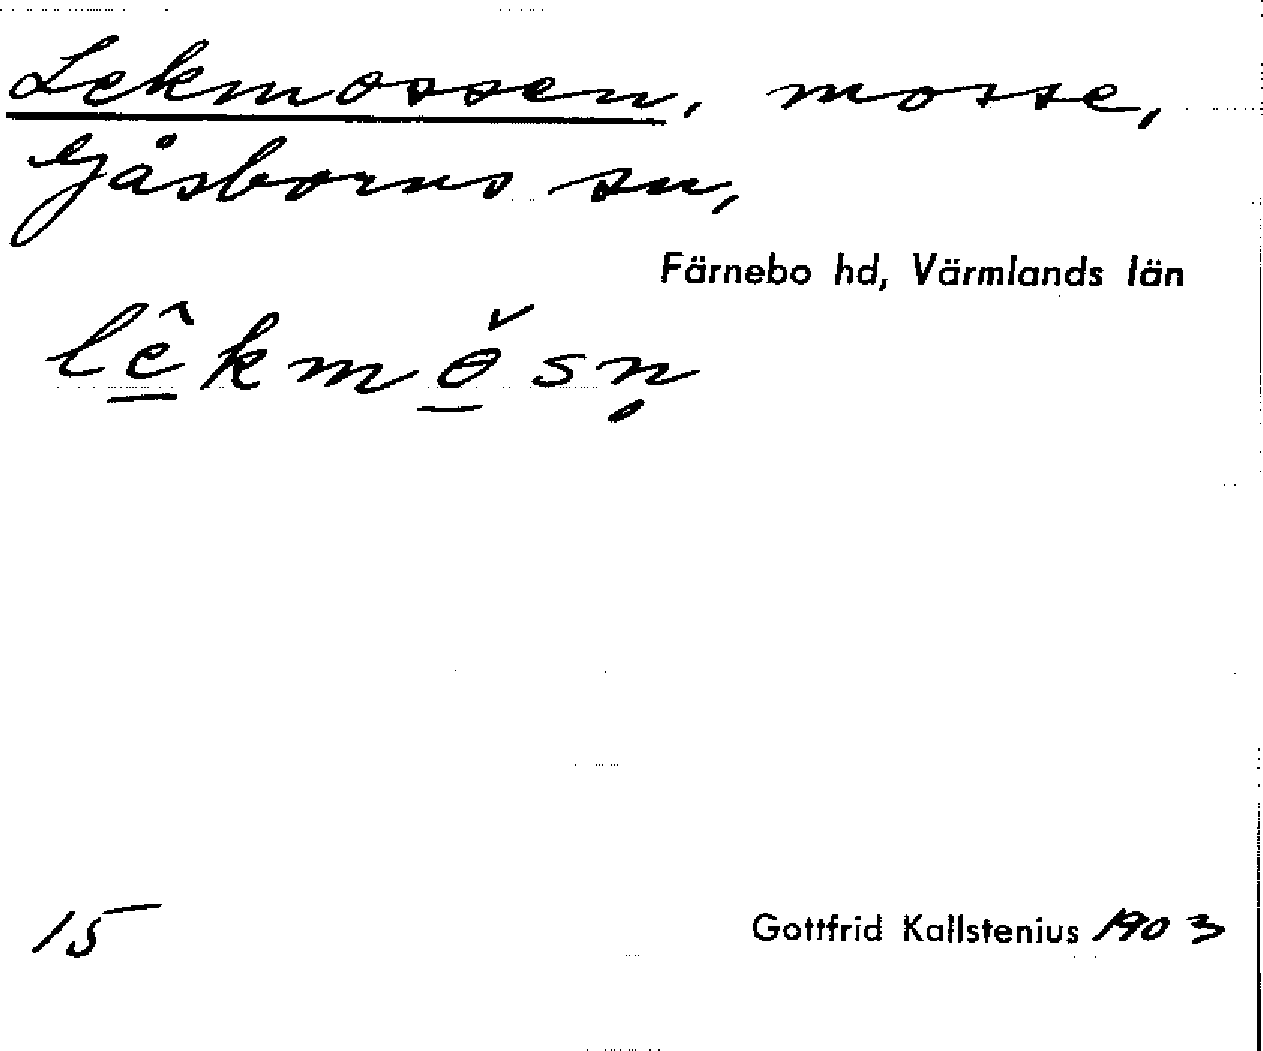 Lekmossen, mosse,
Gåsborns sn,
Färnebo hd, Värmlands län
lê̱kmɵ̱̌sṇ
15
Gottfrid Kallstenius 1903